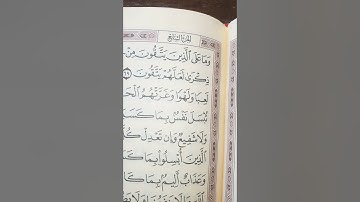 الجزء السابع
وَمَا عَلَى الَّذِينَ يَتَّقُونَ مِنْ
ذِكْرَىٰ لَعَلَّهُمْ يَتَّقُونَ ٦٩
لَعِبًا وَلَهْوًا وَغَرَّتْهُمُ
تُبْسَلَ نَفْسٌ بِمَا
وَلَا شَفِيعٌ وَإِن تَعْدِلْ
الَّذِينَ أُبْسِلُوا بِمَا
وَعَذَابٌ أَلِيمٌ بِمَا